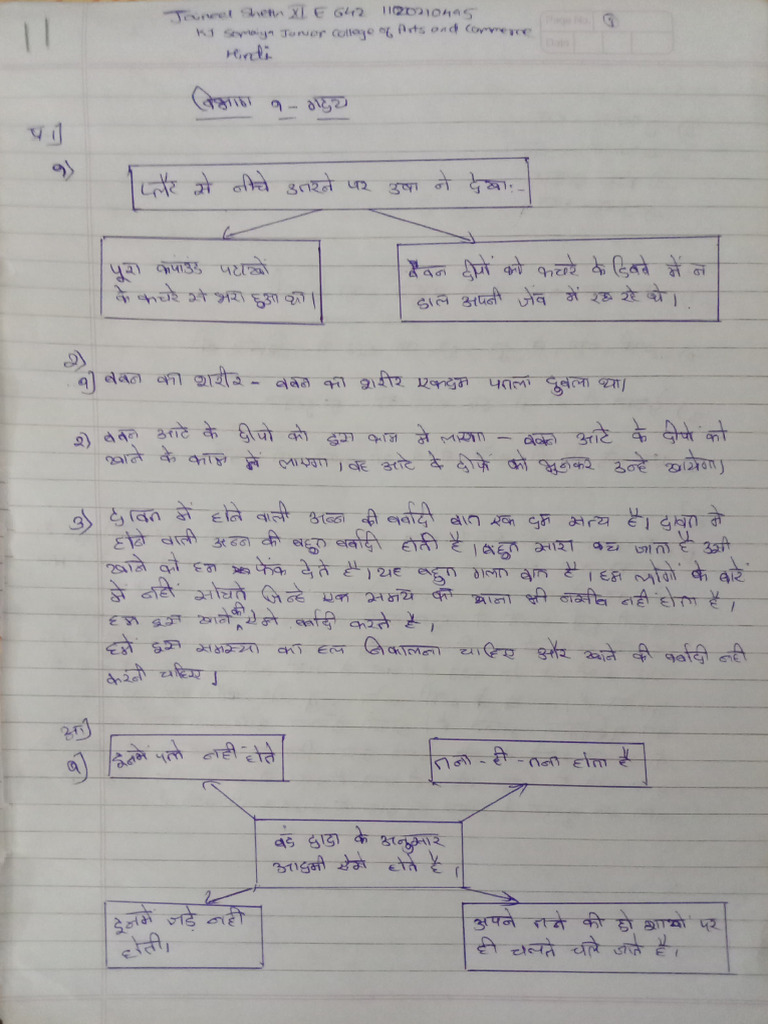 11
Page No. 1
Date
Jauneel Sheth XI E 642 11202104
KJ Somaiya Junior College of Arts and Commerce
Hindi
विभाग १ - गद्य
प्र 1]
१)
फ्लैट से नीचे उतरने पर उषा ने देखा:-
पूरा कंपाउंड पटाखों
के कचरे से भरा हुआ था।
बबन दीपों को कचरे के डिब्बे में न
डाल अपनी जेब में रख रहे थे।
२)
१] बबन का शरीर - बबन का शरीर एकदम पतला दुबला था।
२) बबन आटे के दीपो को इस काम में लाएगा - बबन आटे के दीपों को
खाने के काम में लाएगा। वह आटे के दीपों को भुनकर उन्हें खायेगा।
३) दावत में होने वाली अन्न की बर्बादी बात एक दम सत्य है। दावत मे
होने वाली अन्न की बहुत बर्बादी होती है। बहुत सारा बच जाता है उसी
खाने को हम फेंक देते है। यह बहुत गलत बात है। हम लोगों के बारे
में नहीं सोचते जिन्हे एक समय का खाना भी नसीब नहीं होता है।
हम इस खाने की ऐसे बर्बादी करते है।
हमें इस समस्या का हल निकालना चाहिए और खाने की बर्बादी नही
करनी चाहिए।
आ]
१]
इनमें पत्ते नहीं होते
तना-ही-तना होता है
बड़े दादा के अनुसार
आदमी ऐसे होते है।
इनमें जड़े नही
होती।
अपने तने की दो शाखों पर
ही चलते चले जाते है।